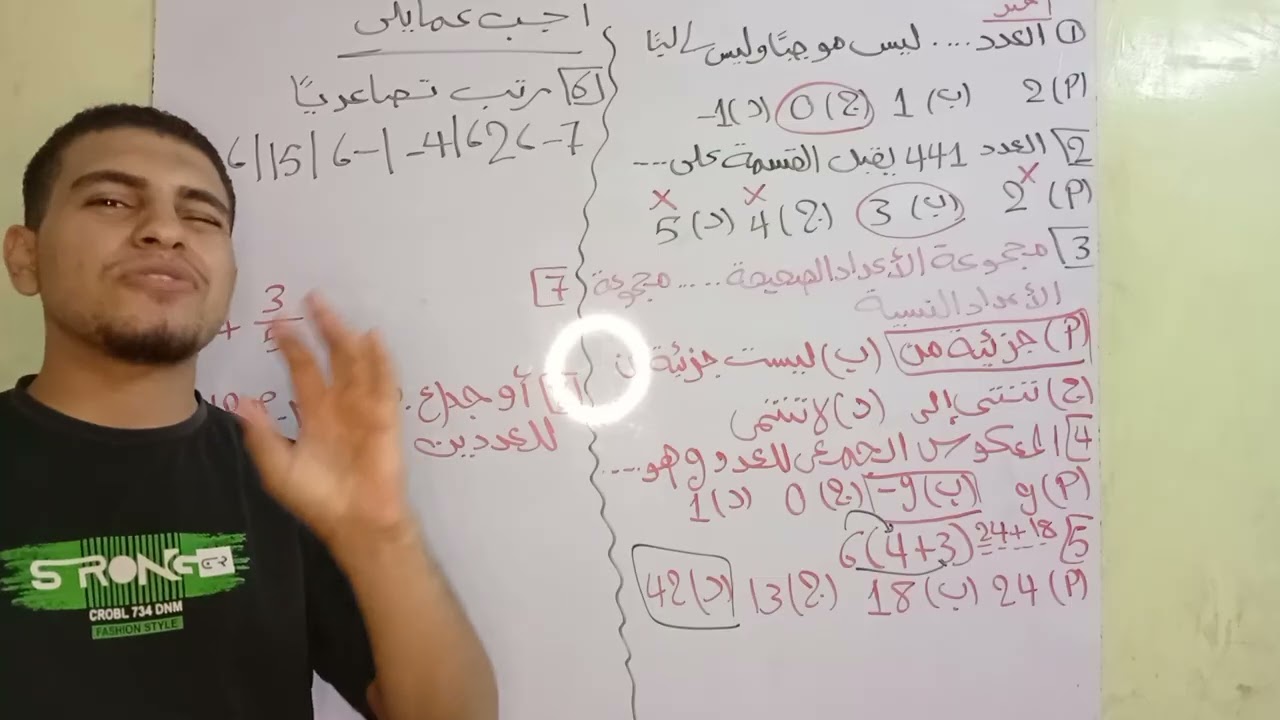 اختر
① العدد .... ليس موجبًا وليس سالبًا
(P) 2 (ب) 1 (ج) 0 (د) -1
2 العدد 441 يقبل القسمة على ....
(P) 2 (ب) 3 (ج) 4 (د) 5
3 مجموعة الأعداد الصحيحة .... مجموعة
الأعداد النسبية
(P) جزئية من (ب) ليست جزئية من
(ج) تنتمي إلى (د) لا تنتمى
4 المعكوس الجمعى للعدد 9 هو ....
(P) 9 (ب) -9 (ج) 0 (د) 1
5 6(4+3) 24+18
(P) 24 (ب) 18 (ج) 13 (د) 42
اجب عما يلى
6 رتب تصاعديًا
-7 ، 2 ، |-4| ، -6 ، |15|
7
+ 3/5
أوجد
للعددين
STRONG
CROBL 734 DNM
FASHION STYLE